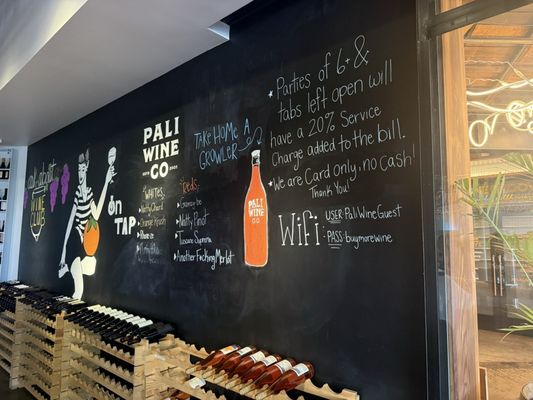 ask about
WINE
CLUB
on
TAP
PALI
WINE
CO
WHITES:
Natty Chard
Orange
TAKE HOME A
GROWLER
Reds:
Gamay be
Natty Pinot
Another F*cking Merlot
PALI
WINE
CO
* Parties of 6+ &
tabs left open will
have a 20% Service
Charge added to the bill.
* We are Card only, no cash!
Thank You!
WiFi:
USER: PaliWineGuest
PASS: buymorewine